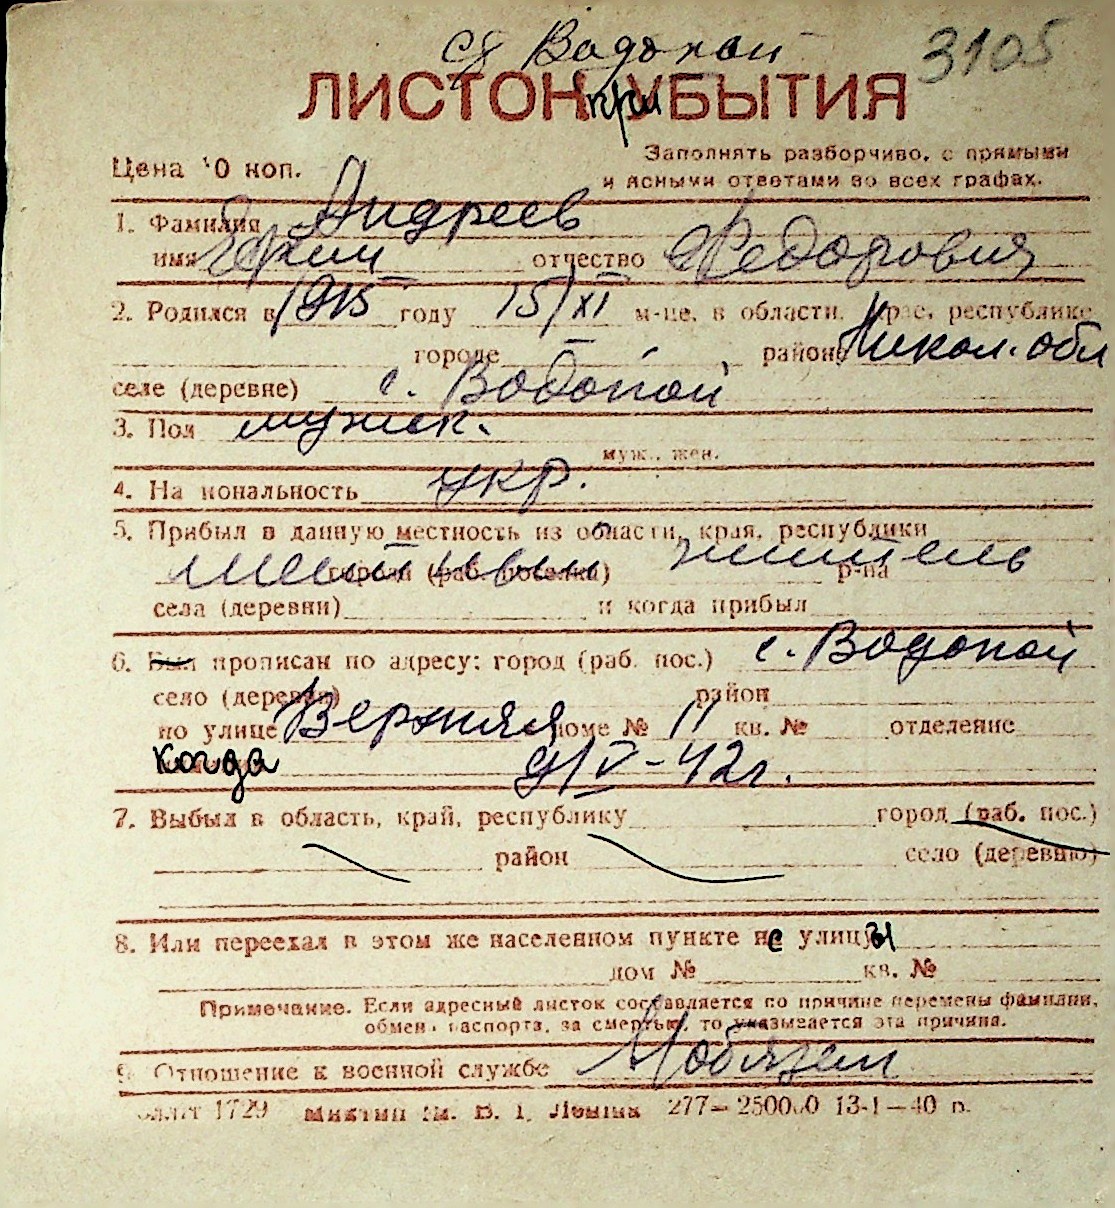 с. Водопой 3105
ЛИСТОК при УБЫТИЯ
Цена 10 коп.
Заполнять разборчиво, с прямыми
и ясными ответами во всех графах.
1. Фамилия Андреев
имя Ефим отчество Федорович
2. Родился в 1915 году 15/XI м-це, в области, крае, республике
городе районе Никол. обл
селе (деревне) с. Водопой
3. Пол мужск.
муж., жен.
4. Национальность укр.
5. Прибыл в данную местность из области, края, республики
местный житель
города (раб. поселка) р-на
села (деревни) и когда прибыл
6. Был прописан по адресу: город (раб. пос.) с. Водопой
село (деревня) район
по улице Верхняя доме № 11 кв. № отделение
когда 9/V-42г.
7. Выбыл в область, край, республику город (раб. пос.)
район село (деревню)
8. Или переехал в этом же населенном пункте не улицы
дом № кв. №
Примечание. Если адресный листок составляется по причине перемены фамилии,
обмена паспорта, за смертью, то указывается эта причина.
9. Отношение к военной службе
1729 им. В. І. Леніна 277—250000 13-1—40 р.